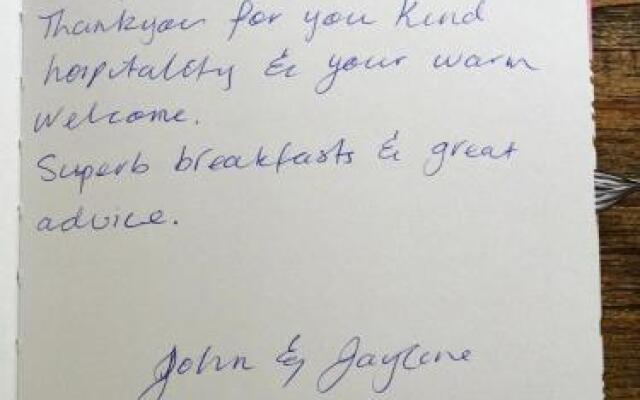 Thankyou for you Kind
hospitality & your warm
welcome.
Superb breakfasts & great
advice.
John & Jaylene